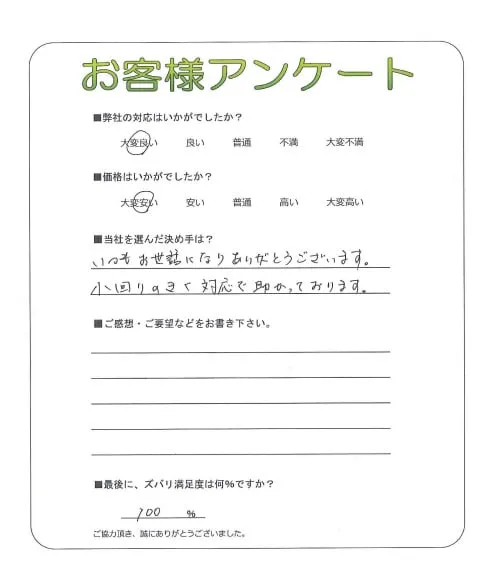 お客様アンケート
■弊社の対応はいかがでしたか？
大変良い 良い 普通 不満 大変不満
■価格はいかがでしたか？
大変安い 安い 普通 高い 大変高い
■当社を選んだ決め手は？
いつもお世話になりありがとうございます。
小回りのきく対応で助かっております。
■ご感想・ご要望などをお書き下さい。
■最後に、ズバリ満足度は何%ですか？
100 %
ご協力頂き、誠にありがとうございました。